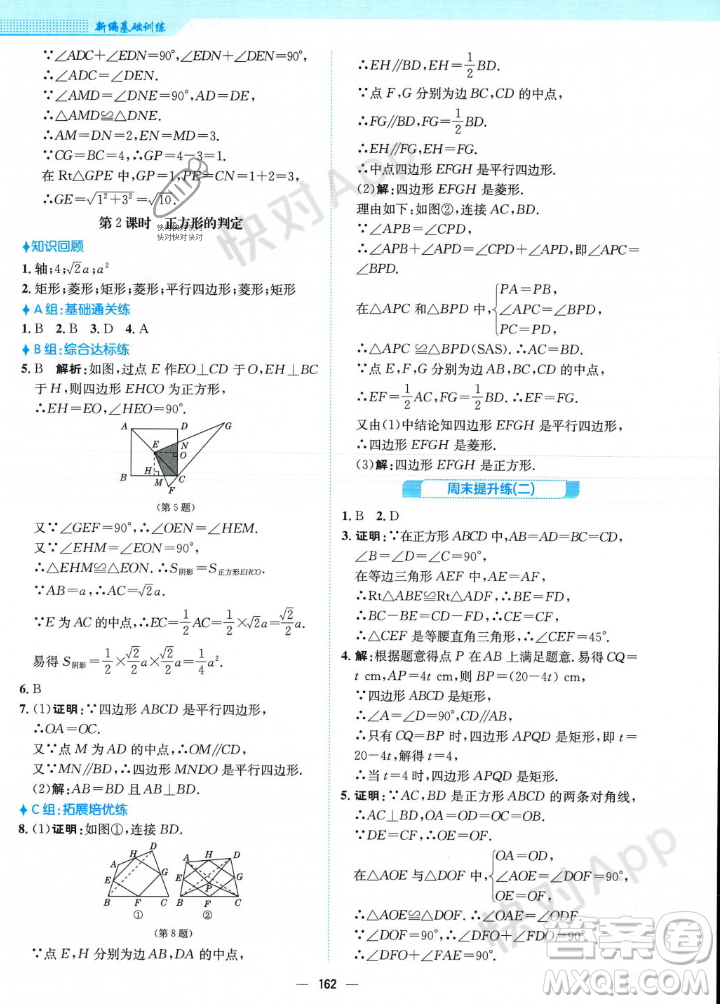 新编基础训练
∵∠ADC+∠EDN=90°,
∴∠ADM+∠EDN=90°,
∵∠AMD=∠DNE=90°,AD=DE,
∴△AMD≌△DNE.
∴AM=DN=DC=3.
∵CG=BC=4,∴GP=4-3=1.
在 Rt△GPE 中,PE=CN=1+2=3,
∴GE=√(1²+3²)=√10.
第 2 课时 正方形的判定
快对快对快对
快对快对快对
知识回顾
1. 轴;4;√2a;a²
2. 矩形;菱形;矩形;菱形;平行四边形;菱形;矩形
A 组:基础通关练
1. B 2. B 3. D 4. A
B 组:综合达标练
5. B 解析:如图,过点 E 作EO⊥CD 于O,EH⊥BC
于 H,则四边形 EHCO 为正方形,
∴EH=EO,∠HEO=90°.
A D G
E N O
B H M C
F
(第 5 题)
又∵∠GEF=90°,∴∠OEN=∠HEM.
又∵∠EHM=∠EON=90°,
∴△EHM≌△EON.∴S阴影=S正方形EHCO.
∵AB=a,∴AC=√2a.
又∵E 为 AC 的中点,∴EC=1/2AC=1/2×√2a=√2/2a.
易得 S阴影=1/2×√2/2a×√2/2a=1/4a².
6. B
7. (1)证明:∵四边形 ABCD 是平行四边形,
∴OA=OC.
又∵点 M 为 AD 的中点,∴OM∥CD.
又∵MN∥BD,∴四边形 MNDO 是平行四边形.
(2)解:AB=BD,AB⊥BD.
C 组:拓展培优练
8. (1)证明:如图①,连接 BD.
A H D
E G
B F C
①
A H D
E G
P
B F C
②
(第 8 题)
∵点 E,H 分别为边 AB,DA 的中点,
∴EH∥BD,EH=1/2BD.
∵点 F,G 分别为边 BC,CD 的中点,
∴FG∥BD,FG=1/2BD.
∴EH∥FG,EH=FG.
∴中点四边形 EFGH 是平行四边形.
(2)解:四边形 EFGH 是菱形.
理由如下:如图②,连接 AC,BD.
∵∠APB=∠CPD,
∴∠APB+∠APD=∠CPD+∠APD,
即∠BPD=∠APC.
在△APC 和△BPD 中,{PA=PB,
∠APC=∠BPD,
PC=PD,
∴△APC≌△BPD(SAS).∴AC=BD.
∵点 E,F,G 分别为边 AB,BC,CD 的中点,
∴EF=1/2AC,FG=1/2BD.∴EF=FG.
又由(1)中结论知四边形 EFGH 是平行四边形,
∴四边形 EFGH 是菱形.
(3)解:四边形 EFGH 是正方形.
周末提升练(二)
1. B 2. D
3. 证明:∵在正方形 ABCD 中,AB=AD,BC=CD,
∠B=∠D=∠C=90°,
在等边三角形 AEF 中,AE=AF,
∴Rt△ABE≌Rt△ADF.∴BE=FD,
∴BC-BE=CD-FD,即 CE=CF.
∴△CEF 是等腰直角三角形,∴∠CEF=45°.
4. 解:根据题意得点 P 在 AB 上满足题意.易得 CQ=
t cm,AP=4t cm,则DQ=(20-t)cm.
∵四边形 ABCD 是矩形,
∴∠A=∠D=90°,CD∥AB.
∴只有 CQ=PB 时,四边形 APQD 是矩形,即 t=
20-4t,解得 t=4.
∴当 t=4 时,四边形 APQD 是矩形.
5. 证明:∵AC,BD 是正方形 ABCD 的两条对角线,
∴AC⊥BD,OA=OD=OC=OB.
∵DE=CF,∴OE=OF.
在△AOE 与△DOF 中,{OA=OD,
∠AOE=∠DOF=90°,
OE=OF,
∴△AOE≌△DOF.∴∠OAE=∠ODF.
∵∠DOF=90°,∴∠DFO+∠ODF=90°.
∴∠DFO+∠FAE=90°.
162
快对App
快对App
答案圈
MXQE.COM